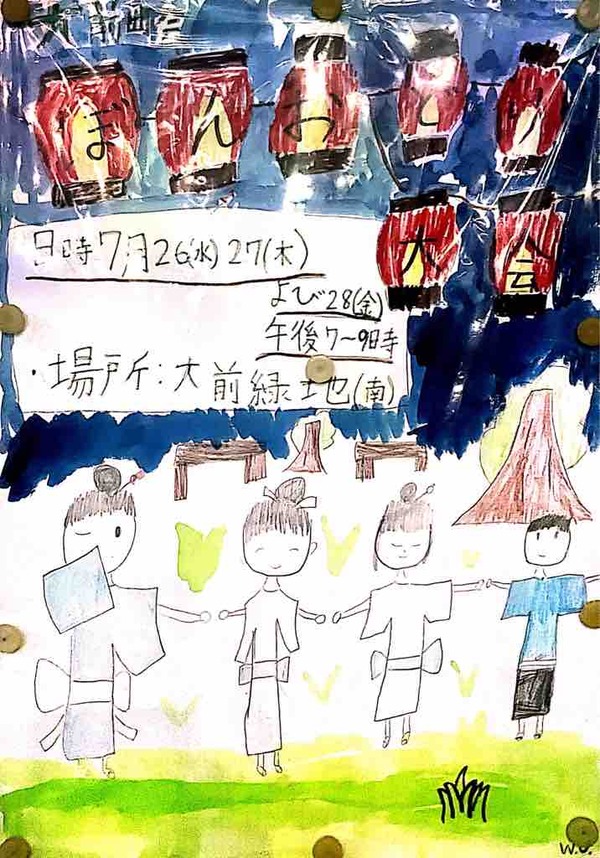 ぼんおどり
大会
日時7月26(水)27(木)
よび28(金)
午後7〜9時
・場所:大前緑地(南)